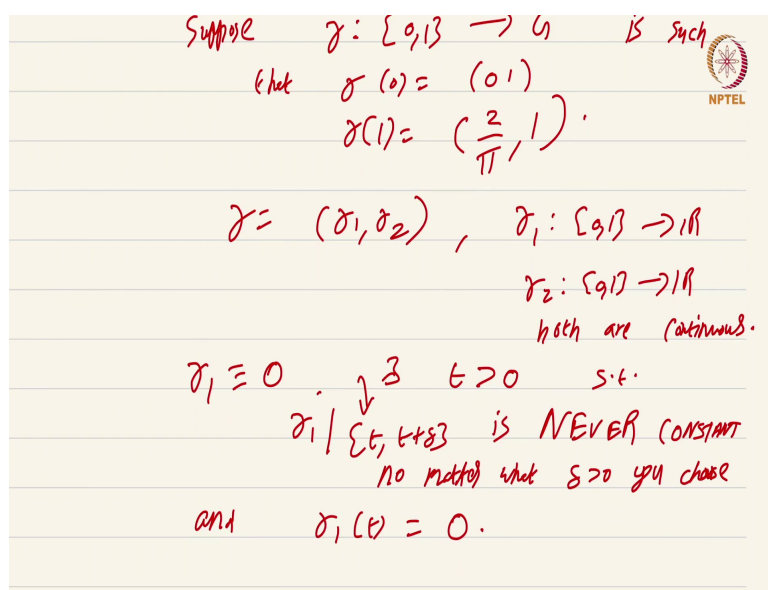 Suppose γ: [0,1] → G is such
that γ(0) = (0 1)
γ(1) = (2/π, 1).
NPTEL
γ = (γ₁, γ₂), γ₁: [0,1] → ℝ
γ₂: [0,1] → ℝ
both are continuous.
γ₁ ≡ 0. ↓ ∃ t > 0 s.t.
γ₁ | [t, t+δ] is NEVER CONSTANT
no matter what δ>0 you choose
and γ₁(t) = 0.